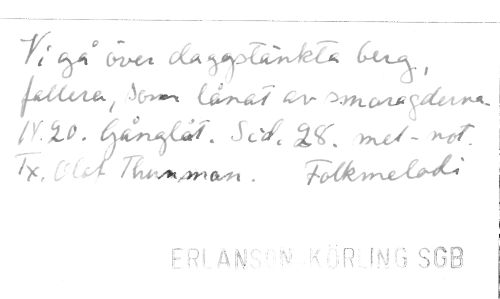 Vi gå över daggstänkta berg,
fallera, som lånat av smaragderna
N. 20. Gånglåt. Sid. 28. met-not.
Tx. Olot Thunman. Folkmelodi
ERLANSON KÖRLING SGB